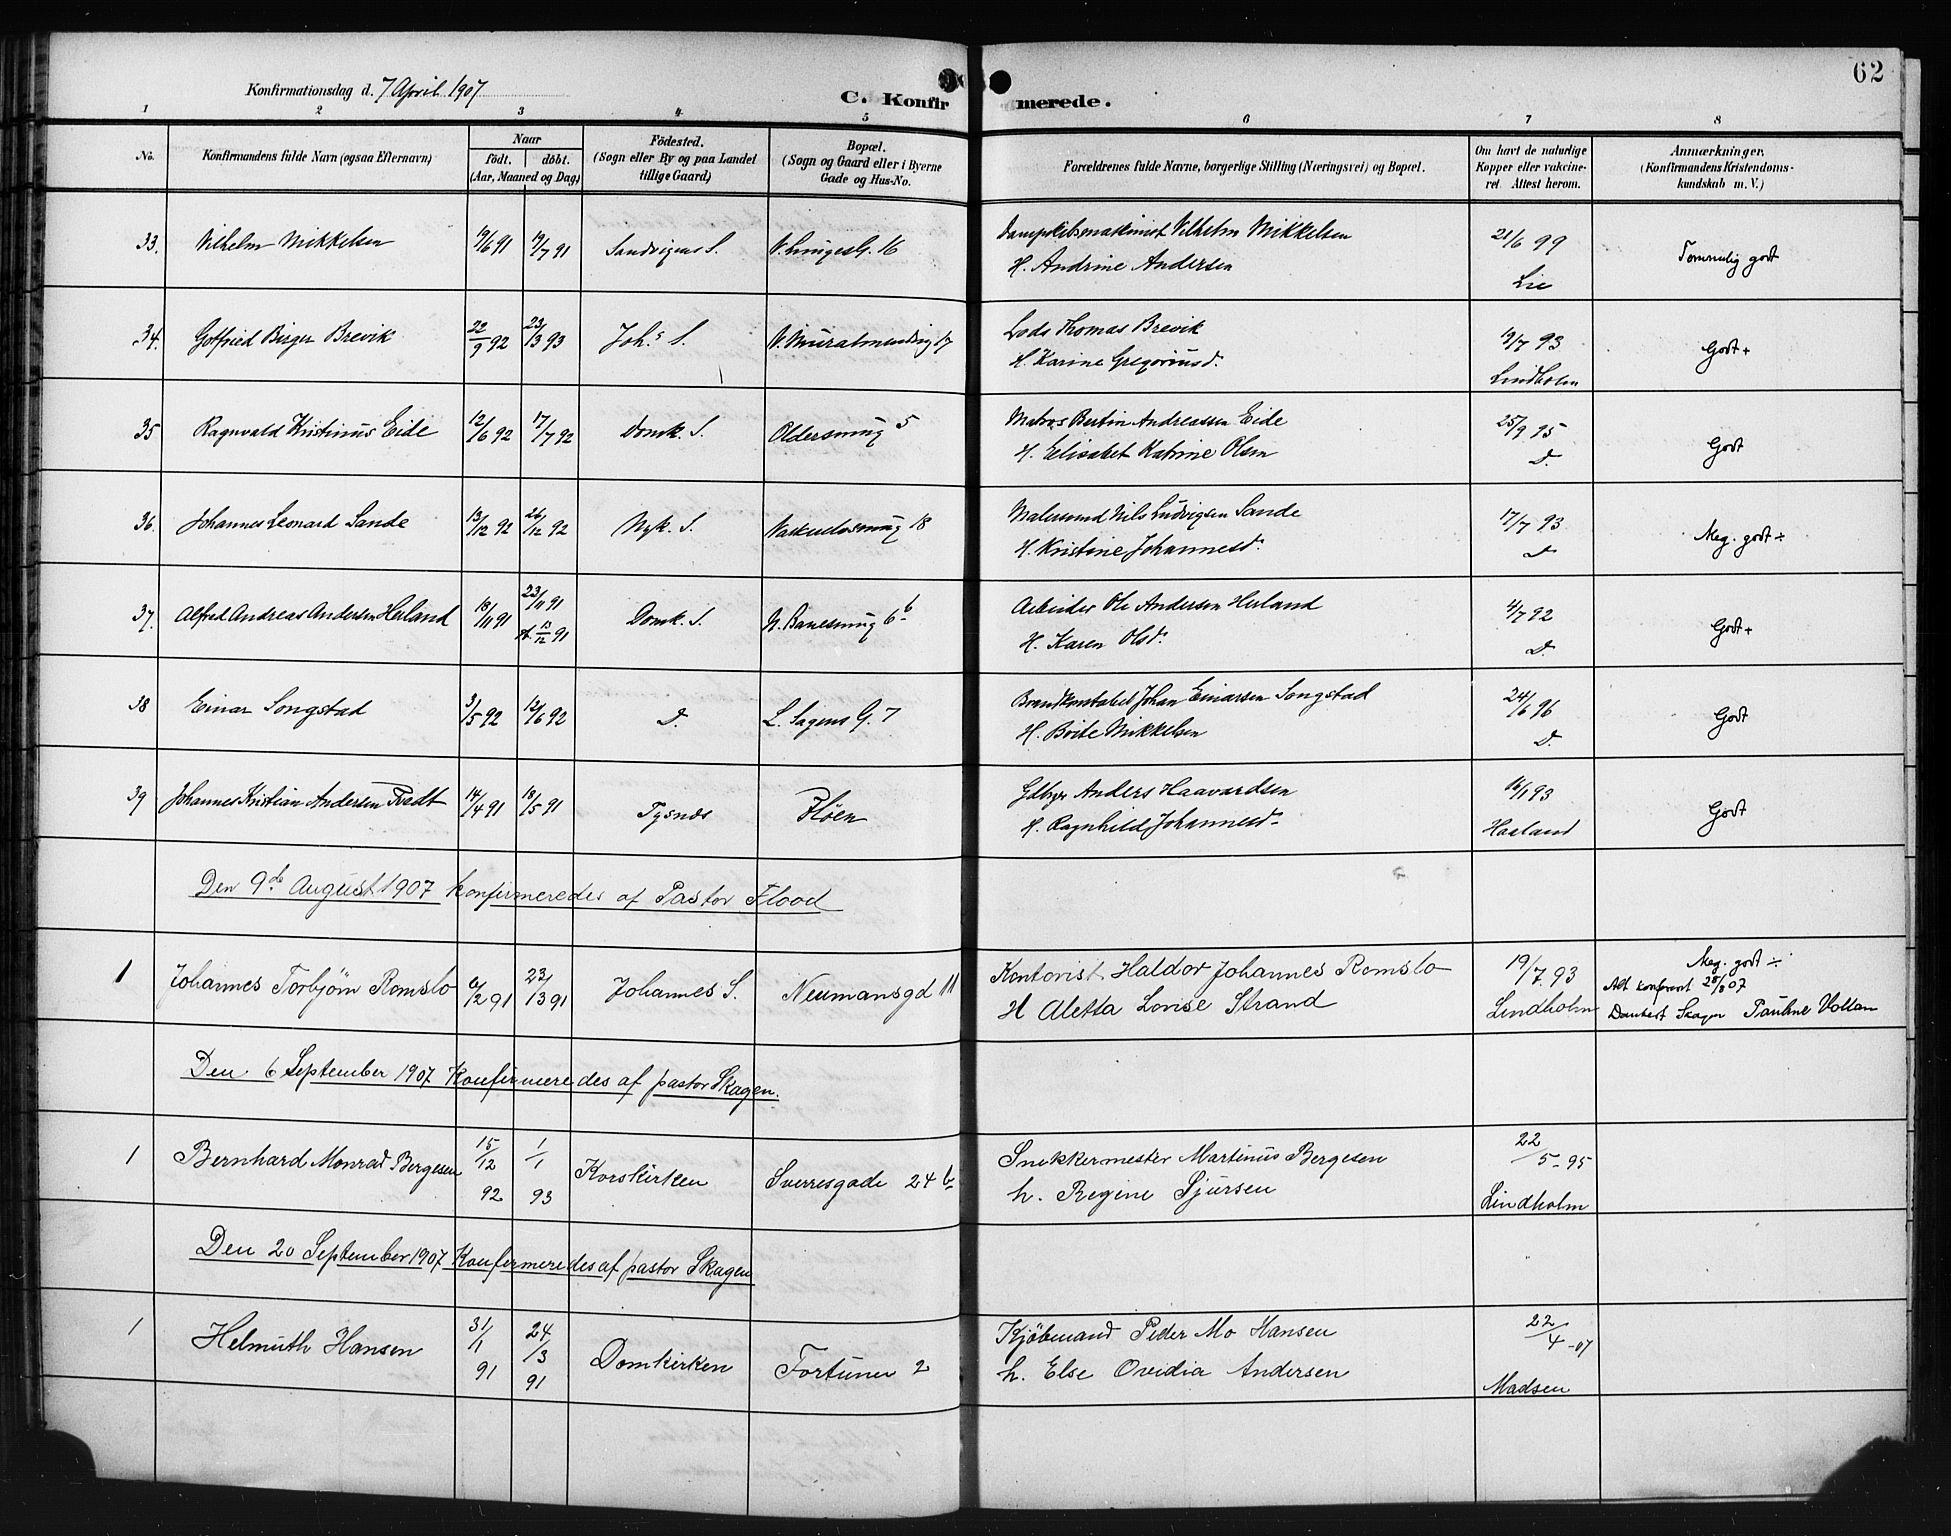 62
Konfirmationsdag d. 7 April 1907
C. Konfirmerede.
1 2 3 4 5 6 7 8
No. Konfirmandens fulde Navn (ogsaa Efternavn) Naar födt. döbt. (Aar, Maaned og Dag) Födested. (Sogn eller By og paa Landet tillige Gaard) Bopæl. (Sogn og Gaard eller i Byerne Gade og Hus-No. Forældrenes fulde Navne, borgerlige Stilling (Næringsvei) og Bopæl. Om havt de naturlige Kopper eller vakcineret. Attest herom. Anmærkninger. (Konfirmandens Kristendomskundskab m. V.)
33. Vilhelm Mikkelsen 19/6 91 19/7 91 Sandvigens S. 16 Vilhelm Mikkelsen 21/6 99 Temmelig godt
H. Andrine Andersen Lie
34. Gotfried Birger Brevik 22/9 92 23/3 93 Joh.s S. V. Muralmending 17 Lods Thomas Brevik 19/7 93 Godt +
H. Karine Gregoriusd. Lindholm
35 Ragnvald Kristinus Eide 12/6 92 17/7 92 Domk. S. 5 Matros Bertin Andreassen Eide 25/9 95 Godt
H. Elisabet Katrine Olsen D.
36. Johannes Leonard Sande 13/12 92 26/12 92 Nyk. S. 18 Malersvend Nils Ludvigsen Sande 17/7 93 Meg. godt ÷
H. Kristine Johannesd. D
37. Alfred Andreas Andersen Herland 18/11 91 23/11 91 Domk. S. 6 b Arbeider Ole Andersen Herland 4/7 92 Godt +
13/12 91 H. Karen Olsd. D.
38 Einar Songstad 3/5 92 12/6 92 D. L. Sagens G. 7 Brandkonstabel Johan Einarsen Songstad 24/6 96 Godt
H. Mikkelsen D.
39 Johannes Kristian Andersen Tvedt 14/4 91 18/5 91 Tysnes Fløen Gdbrgr Anders Haavardsen 16/1 93 Godt
H. Ragnhild Johannesd. Haaland
Den 9de August 1907 konfirmeredes af Pastor Flood
1 Johannes Torbjørn Romslo 6/2 91 23/3 91 Johannes S. Neumansgd 11 Kontorist Haldor Johannes Romslo 19/7. 93 Meg. godt ÷
H Aletta Lovise Strand Lindholm Att 07
Skagen Pauline Vollan
Den 6 September 1907 Konfirmeredes af pastor Skagen.
1 Bernhard Monrad Bergesen 15/12 92 1/1 93 Korskirken Sverresgade 24 b Snekkermester Martinus Bergesen 22/5-95
h. Regine Sjursen Lindholm
Den 20 September 1907 Konfermeredes af pastor Skagen
1 Helmuth Hansen 31/1 91 24/3 91 Domkirken Fortunen 2 Kjøbmand Peder Mo Hansen 22/4-07
h. Else Ovidia Andersen Madsen